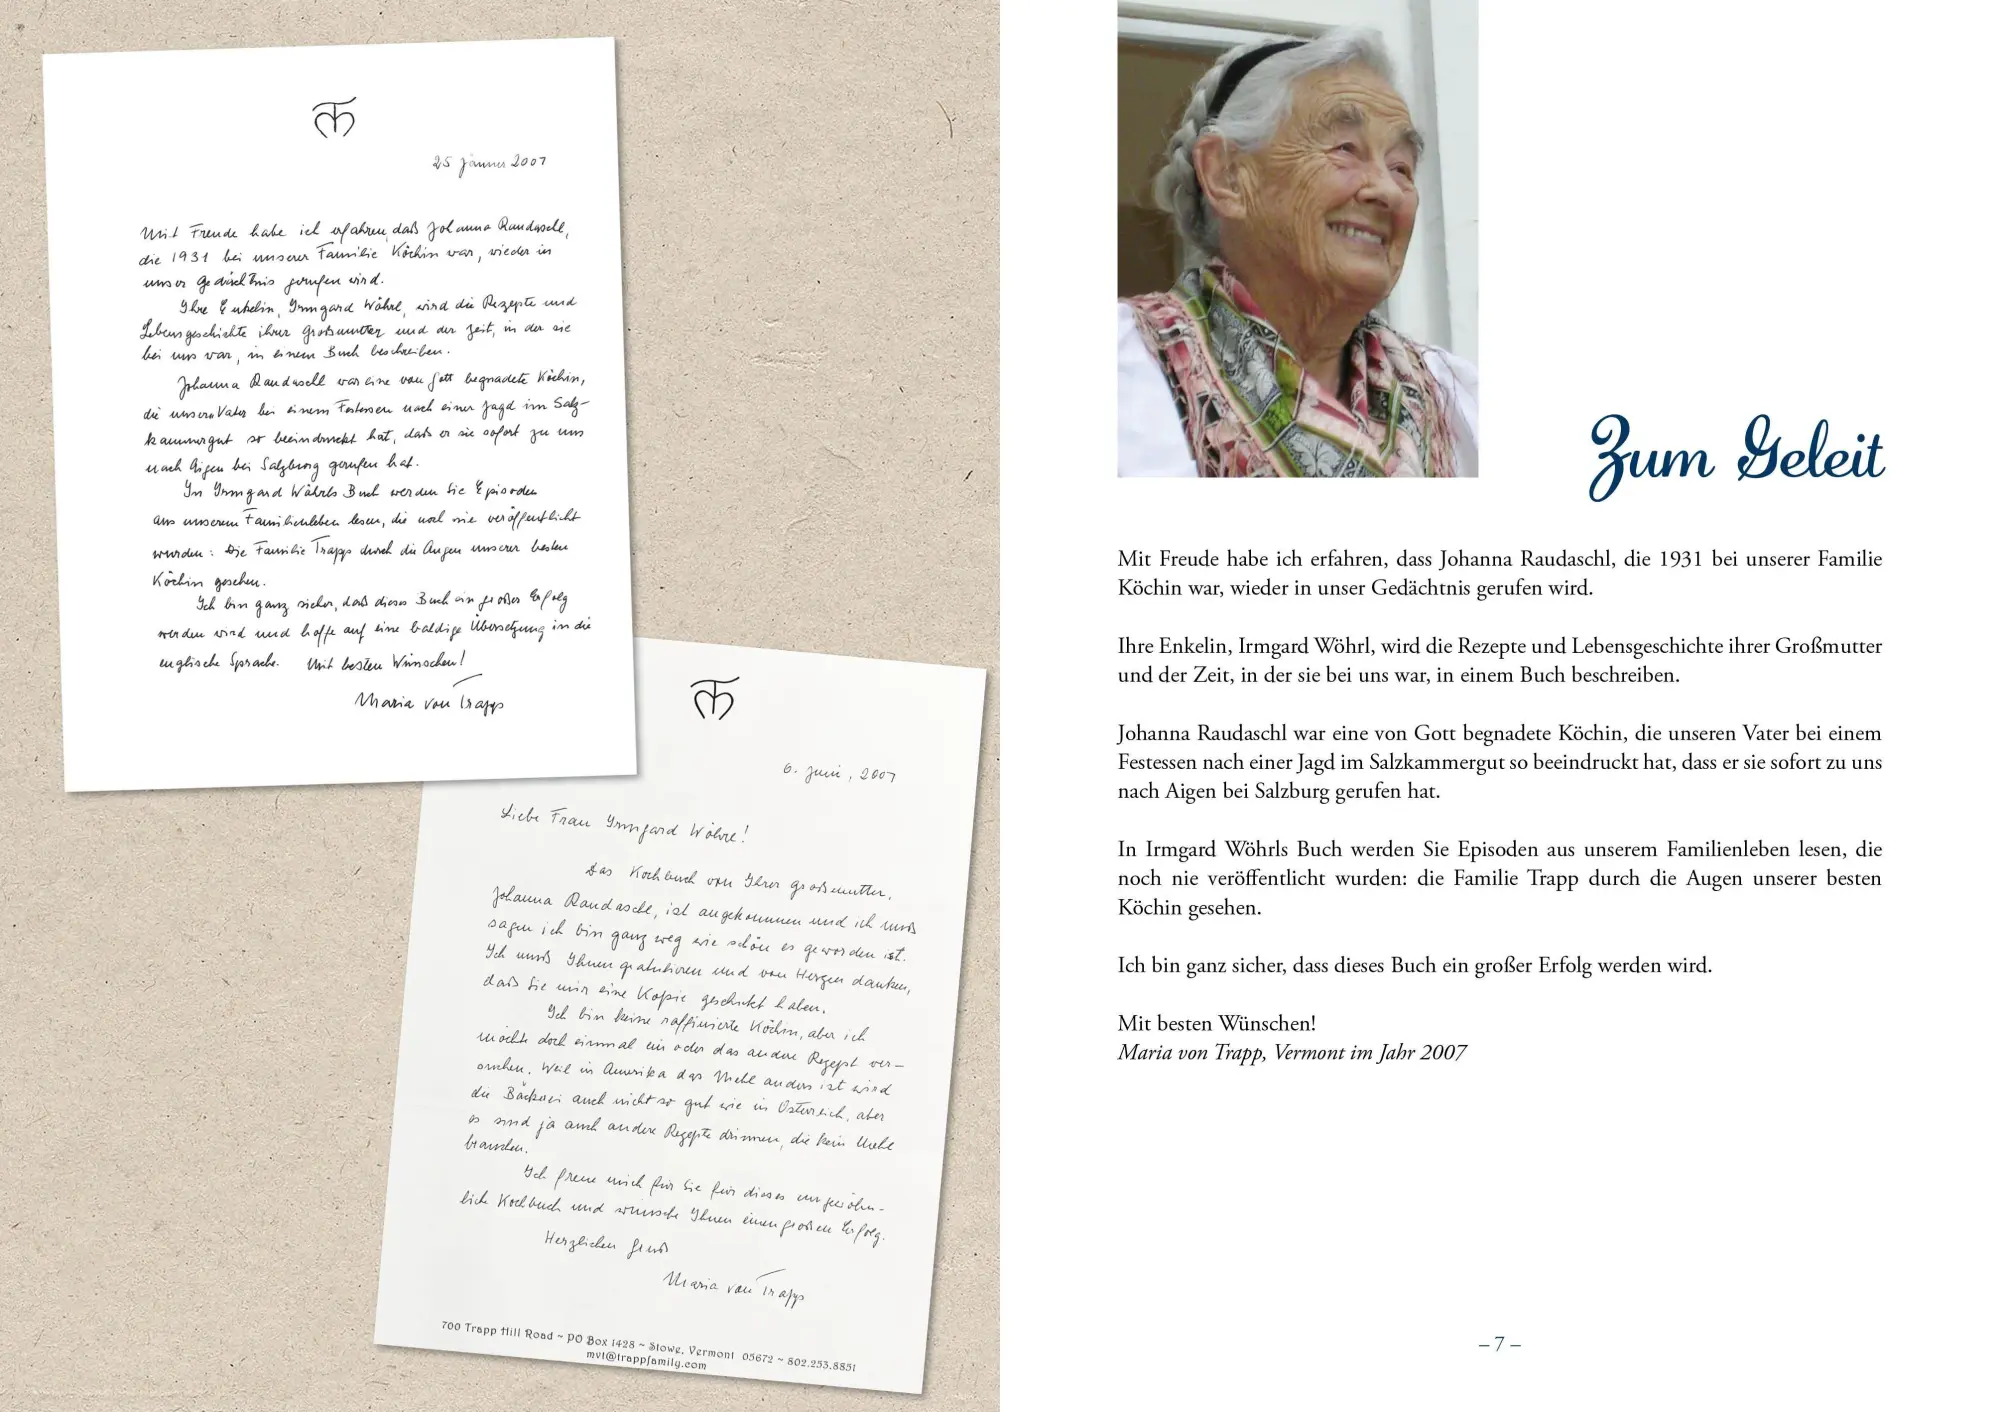 25 Jänner 2007
Mit Freude habe ich erfahren, daß Johanna Raudaschl,
die 1931 bei unserer Familie Köchin war, wieder in
unser Gedächtnis gerufen wird.
Ihre Enkelin, Irmgard Wöhrl, wird die Rezepte und
Lebensgeschichte ihrer Großmutter und der Zeit, in der sie
bei uns war, in einem Buch beschreiben.
Johanna Raudaschl war eine von Gott begnadete Köchin,
die unseren Vater bei einem Festessen nach einer Jagd im Salz-
kammergut so beeindruckt hat, daß er sie sofort zu uns
nach Aigen bei Salzburg gerufen hat.
In Irmgard Wöhrls Buch werden Sie Episoden
aus unserem Familienleben lesen, die noch nie veröffentlicht
wurden: Die Familie Trapp durch die Augen unserer besten
Köchin gesehen.
Ich bin ganz sicher, daß dieses Buch ein großer Erfolg
werden wird und hoffe auf eine baldige Übersetzung in die
englische Sprache. Mit besten Wünschen!
Maria von Trapp
6. Juni, 2007
Liebe Frau Irmgard Wöhrl!
Das Kochbuch von Ihrer Großmutter,
Johanna Raudaschl, ist angekommen und ich muß
sagen ich bin ganz weg wie schön es geworden ist.
Ich muß Ihnen gratulieren und von Herzen danken,
daß Sie mir eine Kopie geschickt haben.
Ich bin keine raffinierte Köchin, aber ich
möchte doch einmal ein oder das andere Rezept ver-
suchen. Weil in Amerika das Mehl anders ist wird
die Bäckerei auch nicht so gut wie in Österreich, aber
es sind ja auch andere Rezepte drinnen, die kein Mehl
brauchen.
Ich freue mich für Sie für dieses ungewöhn-
liche Kochbuch und wünsche Ihnen einen großen Erfolg.
Herzlichen Gruß
Maria von Trapp
700 Trapp Hill Road ~ PO Box 1428 ~ Stowe, Vermont 05672 ~ 802.253.8851
mvt@trappfamily.com
Zum Geleit
Mit Freude habe ich erfahren, dass Johanna Raudaschl, die 1931 bei unserer Familie
Köchin war, wieder in unser Gedächtnis gerufen wird.
Ihre Enkelin, Irmgard Wöhrl, wird die Rezepte und Lebensgeschichte ihrer Großmutter
und der Zeit, in der sie bei uns war, in einem Buch beschreiben.
Johanna Raudaschl war eine von Gott begnadete Köchin, die unseren Vater bei einem
Festessen nach einer Jagd im Salzkammergut so beeindruckt hat, dass er sie sofort zu uns
nach Aigen bei Salzburg gerufen hat.
In Irmgard Wöhrls Buch werden Sie Episoden aus unserem Familienleben lesen, die
noch nie veröffentlicht wurden: die Familie Trapp durch die Augen unserer besten
Köchin gesehen.
Ich bin ganz sicher, dass dieses Buch ein großer Erfolg werden wird.
Mit besten Wünschen!
Maria von Trapp, Vermont im Jahr 2007
– 7 –